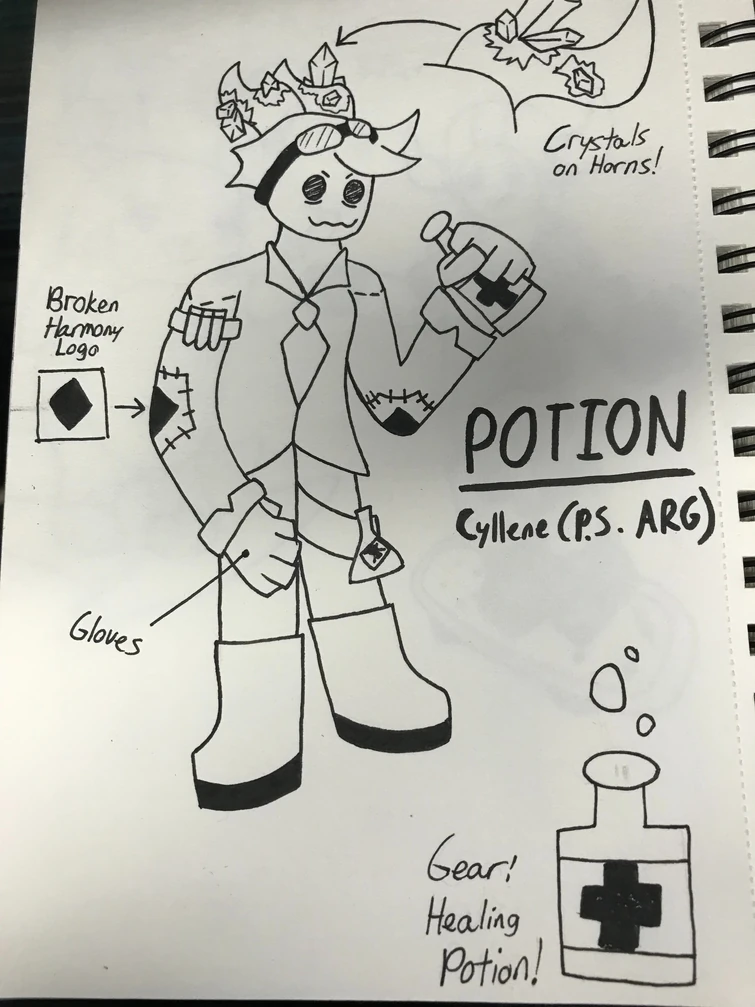 Crystals
on Horns!
Broken
Harmony
Logo
POTION
Cyllene (P.S. ARG)
Gloves
Gear!
Healing
Potion!